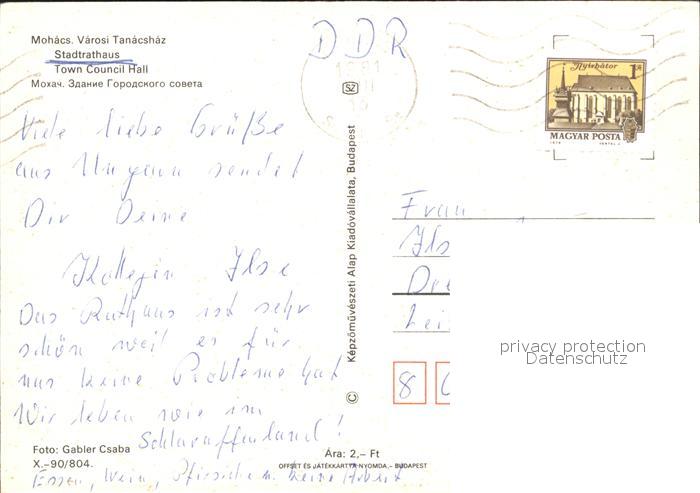 Mohács. Városi Tanácsház
Stadtrathaus
Town Council Hall
Мохач. Здание Городского совета
DDR
Nyírbátor
1 Ft
MAGYAR POSTA
Viele liebe Grüße
aus Ungarn sendet
Dir Deine
Kollegin Ilse
Das Rathaus ist sehr
schön weil es für
uns keine Probleme hat
Wir leben wie im
Schlaraffenland!
Essen, Wein, Pfirsiche u. keine Arbeit
Foto: Gabler Csaba
X.–90/804.
Ára: 2,– Ft
OFFSET ÉS JÁTÉKKÁRTYA-NYOMDA,- BUDAPEST
© Képzőművészeti Alap Kiadóvállalata, Budapest
Frau
Ils
Dre
Lei
8
privacy protection
Datenschutz